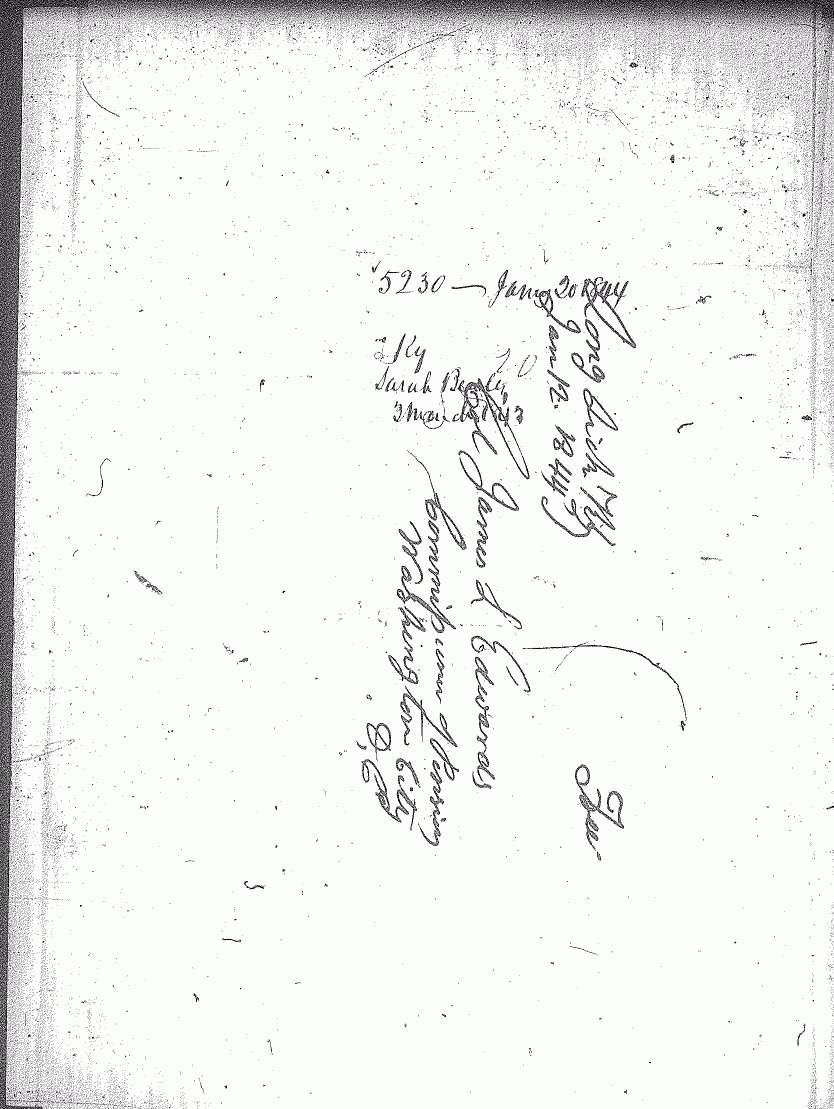 5230 — Jany 20 1844
Ky
20
Sarah
3 March 1843
Long Lick Ky
Jan 12. 1844
Free
Col James L Edwards
Commissioner of Pensions
Washington City
D. C.